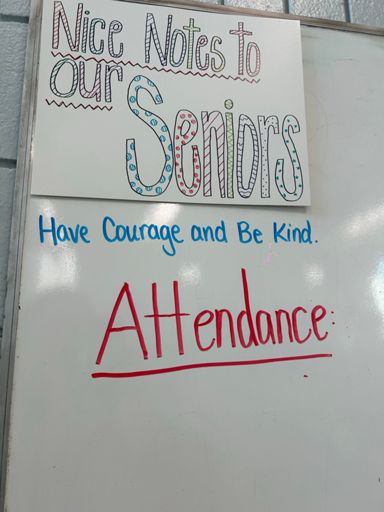 Nice Notes to
our
Seniors
Have Courage and Be Kind.
Attendance: